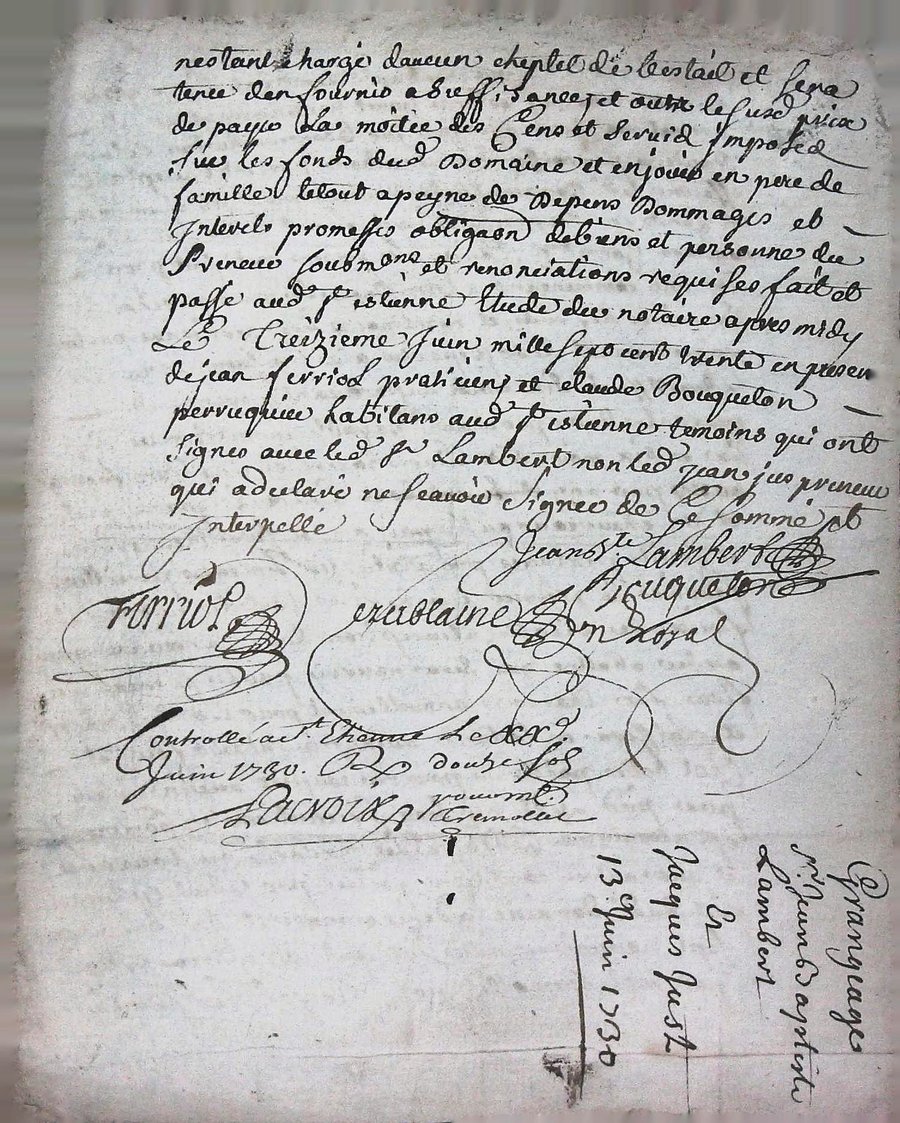 nestant chargé daucun cheptel de bestail et sera
tenu den fournir a suffisance, et outre le susd prix
de payer La moitée des Cens et Servis imposed
sur les fonds dud Domaine et enjouir en pere de
famille letout apeyne de Depens Dommages et
Interets promesses obligaon debiens et personne du
Preneur soubmons et renonciations requises fait et
passé aud st estienne Etude du notaire apres midy
Le Treizieme Juin mille sept cent trente en presen
dejean ferriol praticien, et claude Bouqueton
perruquier habitans aud st estienne temoins qui ont
Signes avec led sr Lambert non led jean jus preneur
qui adeclaré ne scavoir Signer de Ce Sommé et
Interpellé
Jean bte Lambert
Bouqueton
ferriol
nt Royal
Controllé a st. Etienne Le xxe.
Juin 1730. R douze sols
Lacroix
Grangeage
sr. Jean Baptiste
Lambert
En
Jacques Just
13e. Juin 1730